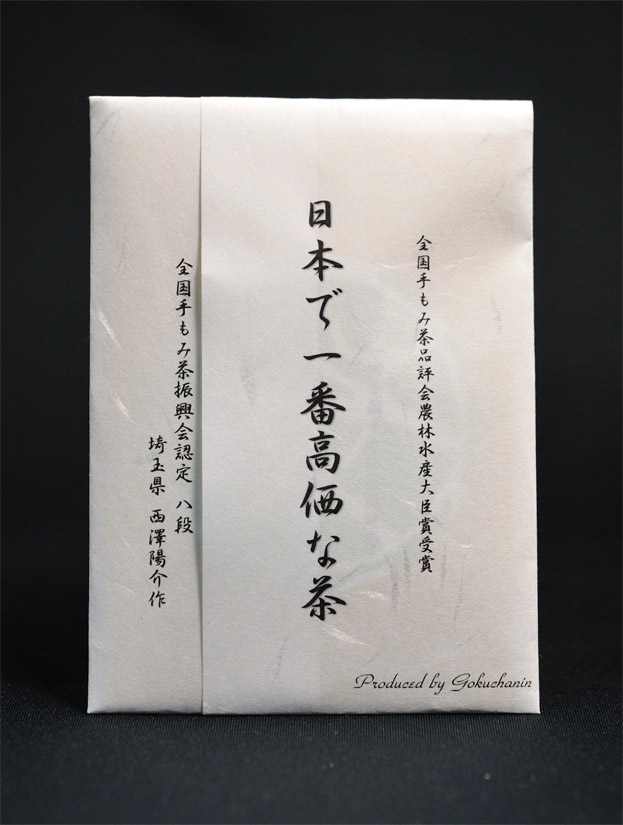 全国手もみ茶品評会農林水産大臣賞受賞
日本で一番高価な茶
全国手もみ茶振興会認定 八段
埼玉県 西澤陽介作
Produced by Gokuchanin